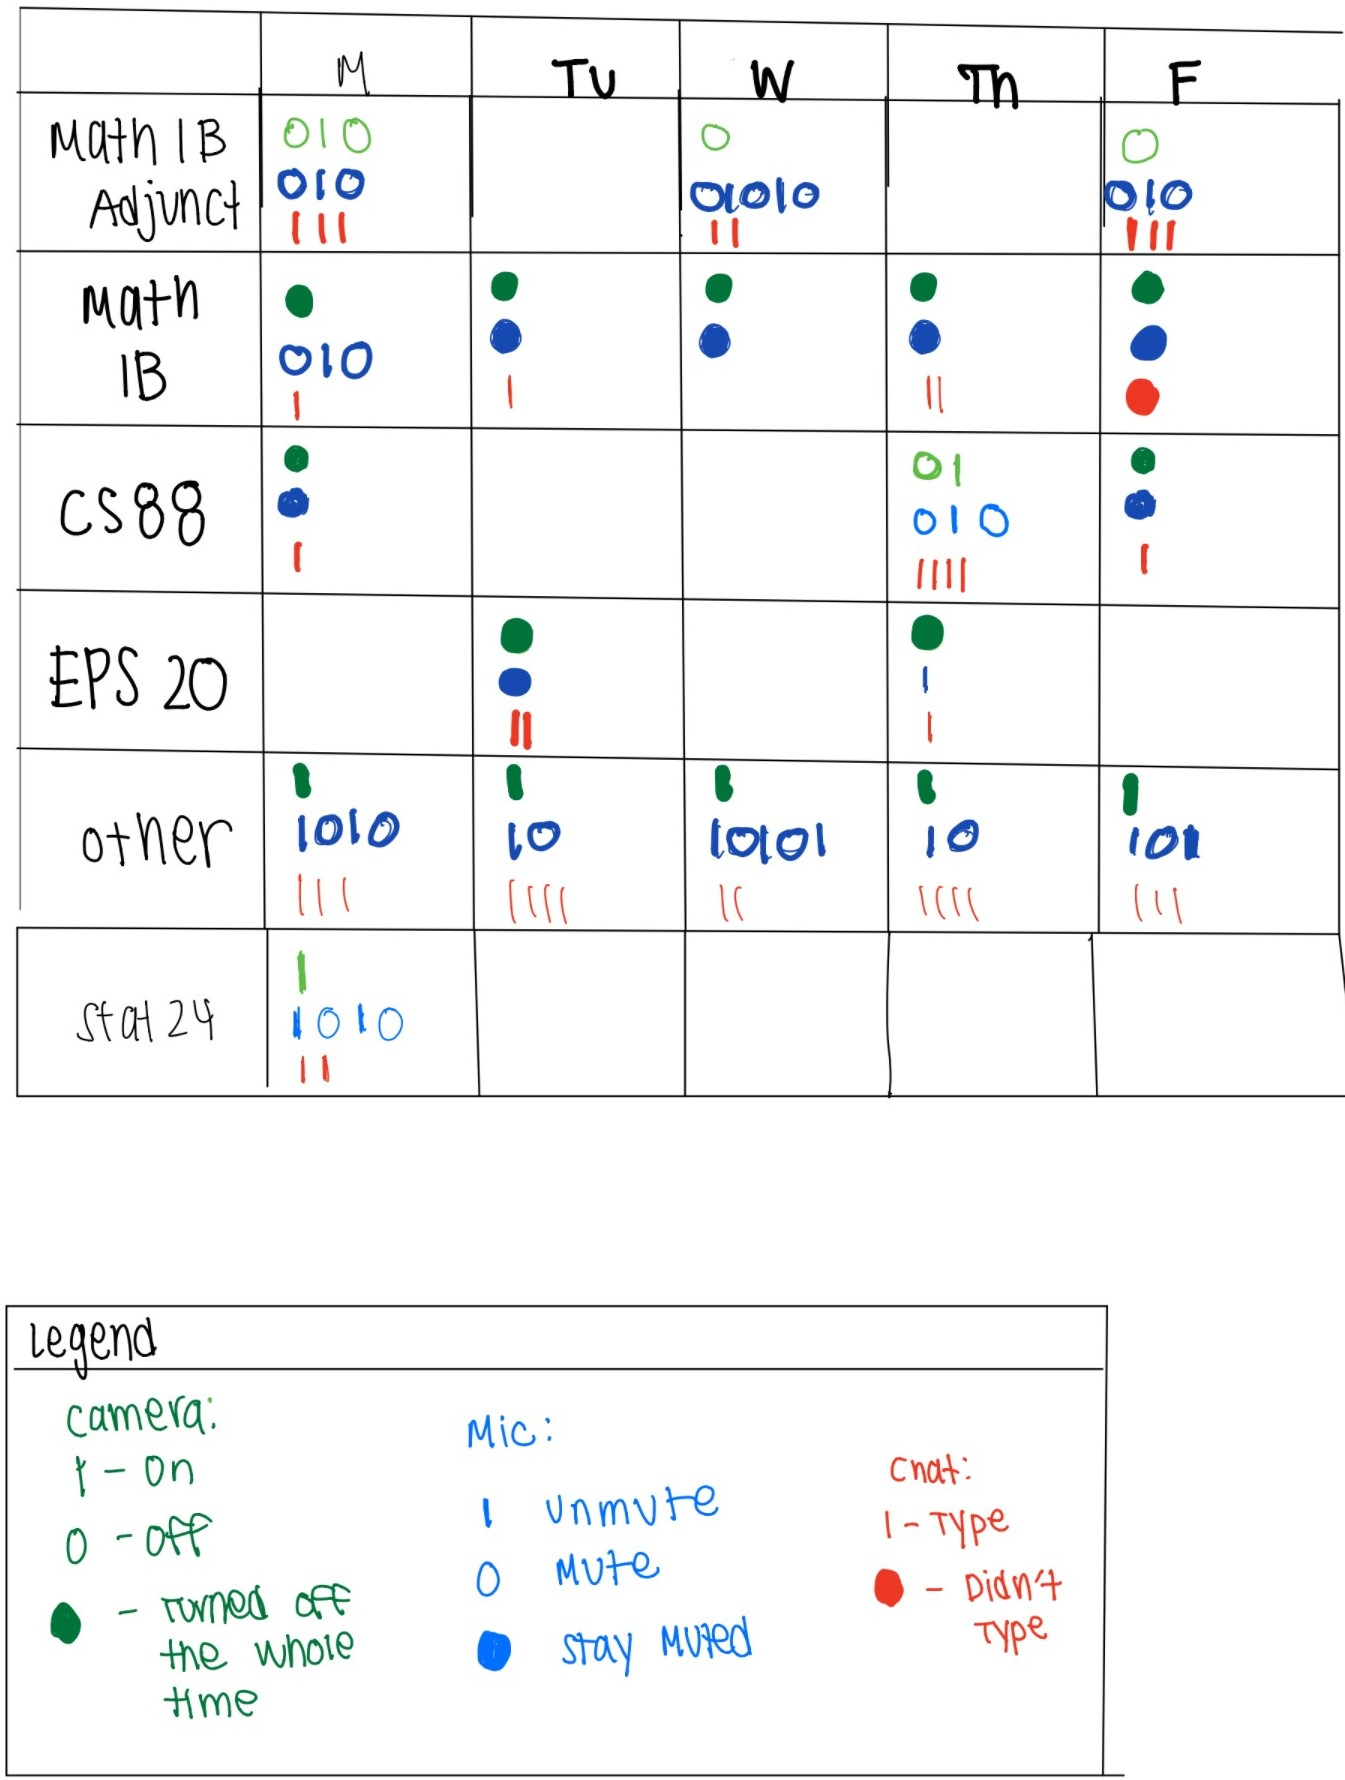 M Tu W Th F
Math 1B
Adjunct
010 0 0
010 01010 010
111 11 111
Math
1B
010
1 1 11
CS88
01
010
1 1111 1
EPS 20
1
11 1
other
1 1 1 1 1
1010 10 10101 10 101
111 1111 11 1111 111
Stat 24
1
1010
11
Legend
Camera:
1 - On
0 - Off
- Turned off
the whole
time
Mic:
1 unmute
0 Mute
Stay Muted
Chat:
1 - Type
- Didn't
Type